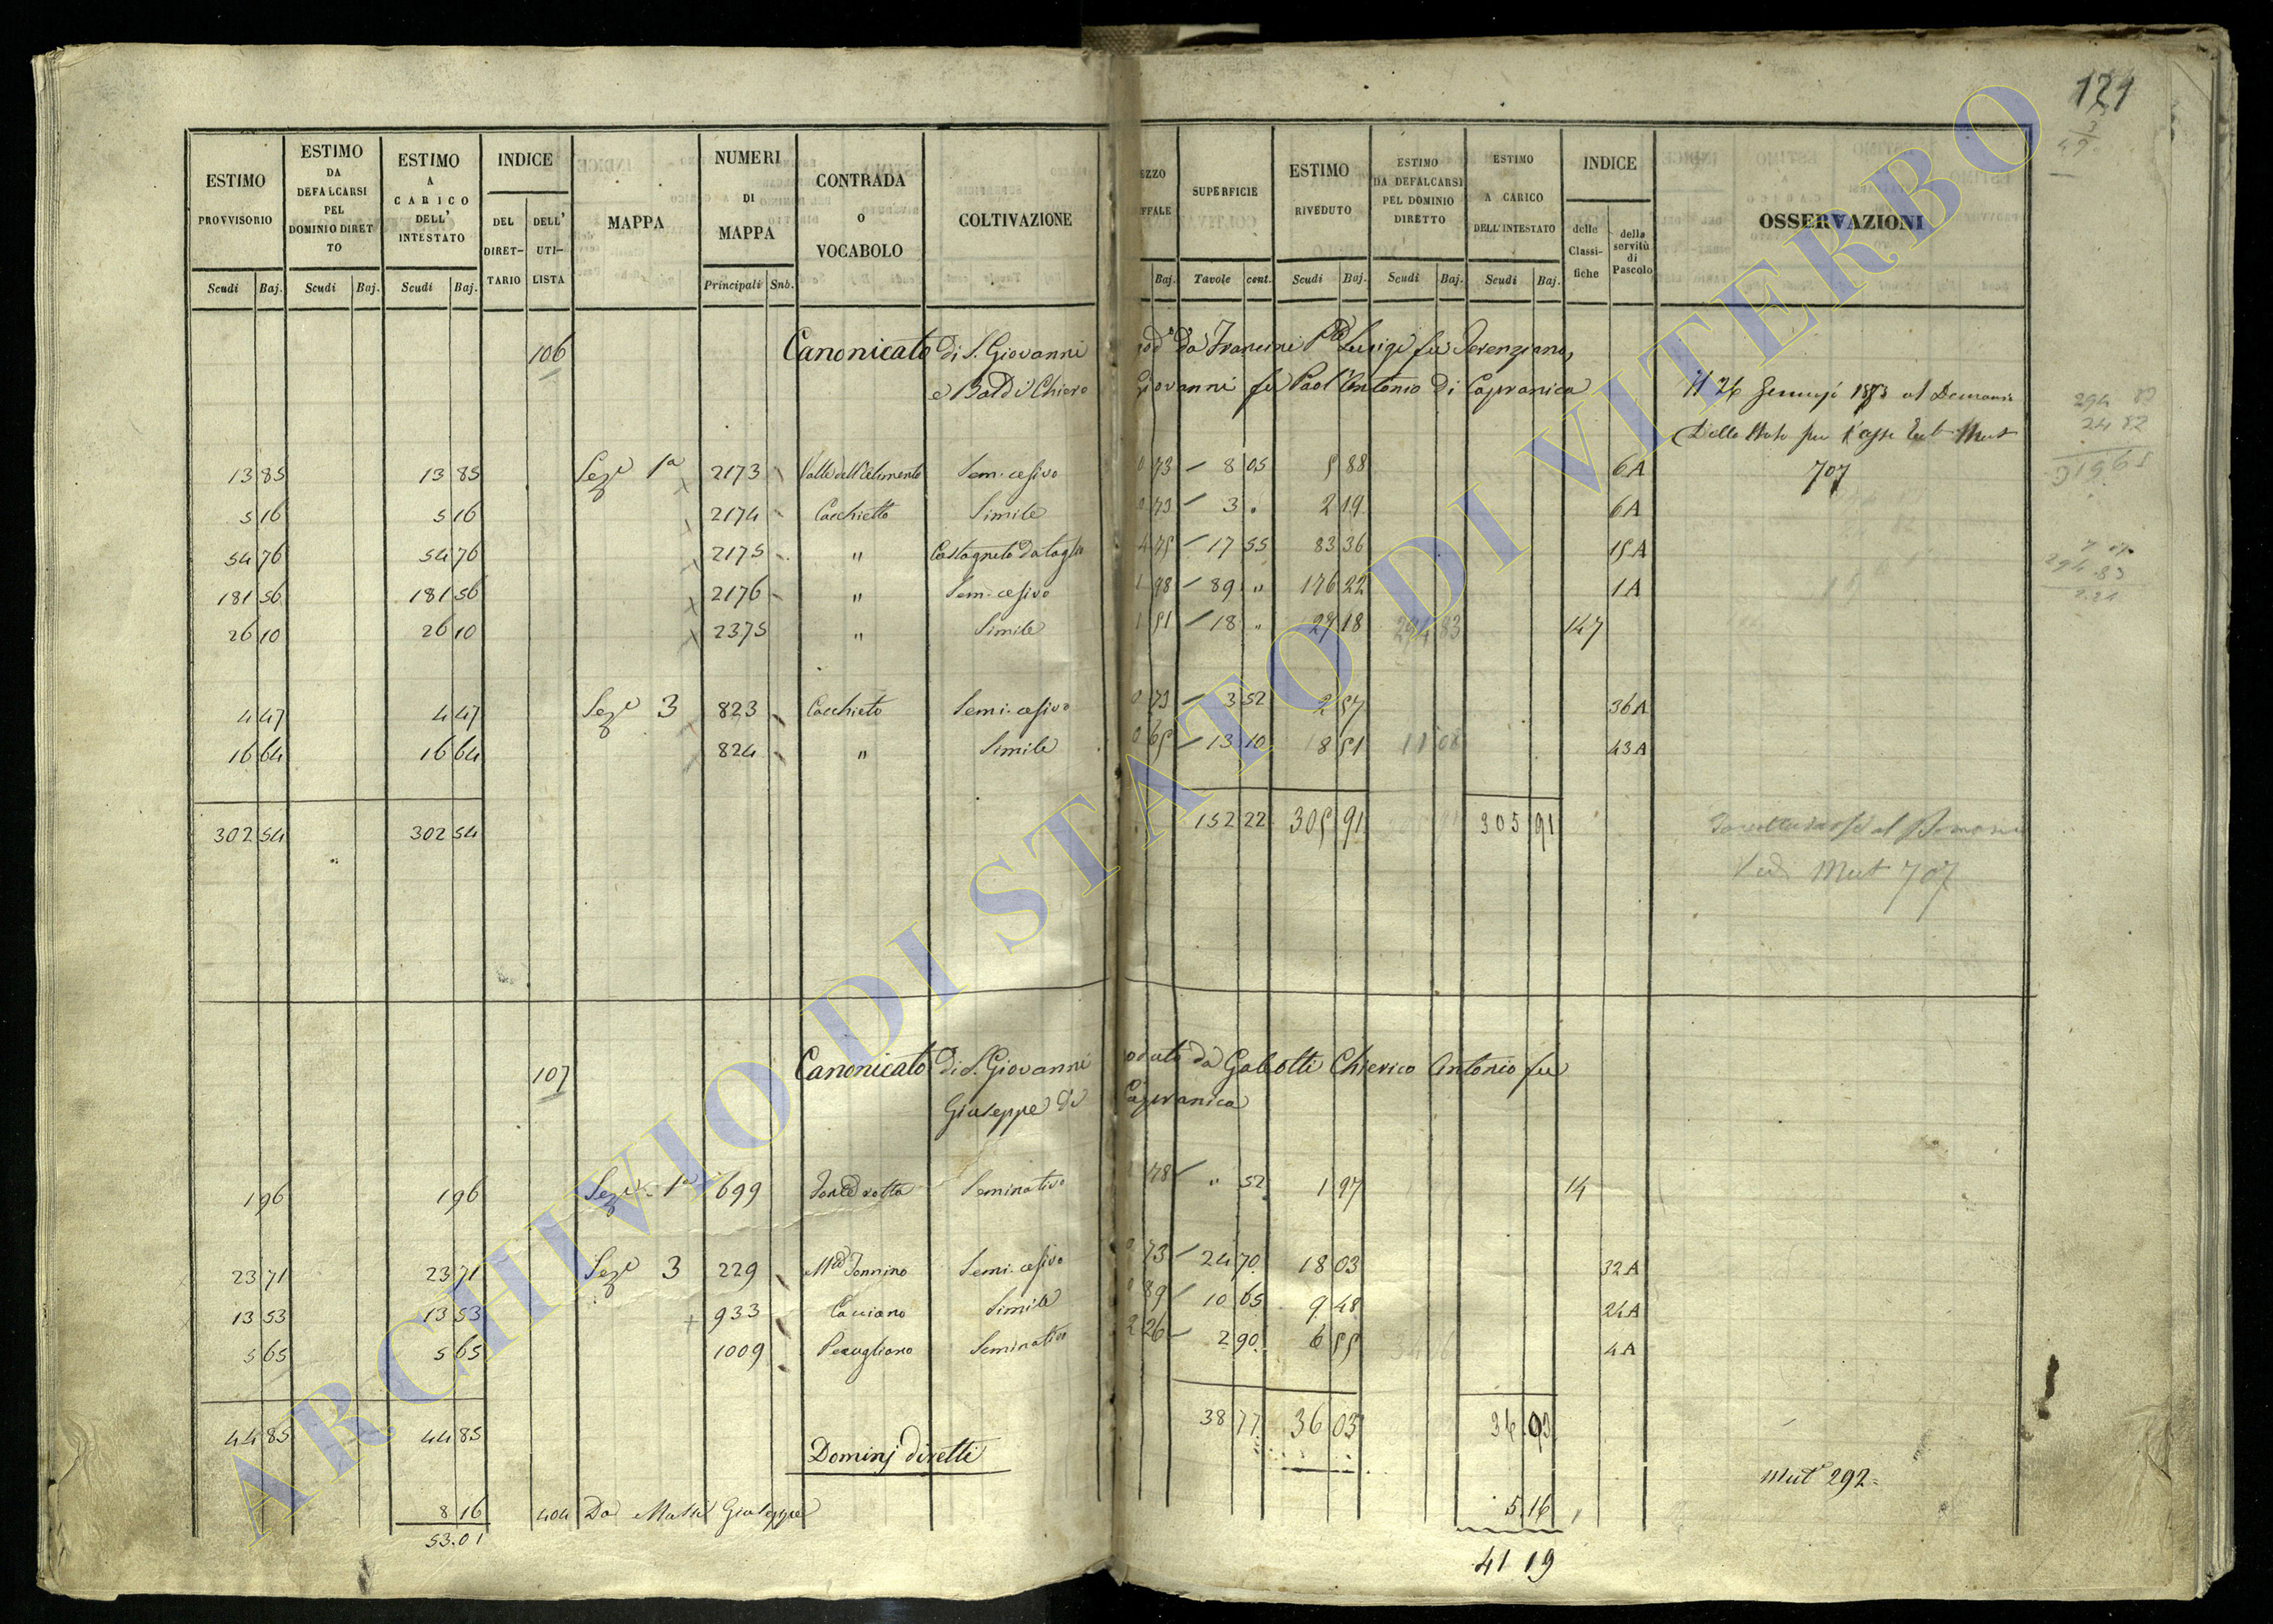 121
ESTIMO PROVVISORIO
ESTIMO DA DEFALCARSI PEL DOMINIO DIRETTO
ESTIMO A CARICO DELL' INTESTATO
INDICE
DEL DIRETTARIO
DELL' UTILISTA
MAPPA
NUMERI DI MAPPA
CONTRADA O VOCABOLO
COLTIVAZIONE
EZZO FFALE
SUPERFICIE
ESTIMO RIVEDUTO
ESTIMO DA DEFALCARSI PEL DOMINIO DIRETTO
ESTIMO A CARICO DELL'INTESTATO
INDICE
delle Classifiche
della servitù di Pascolo
OSSERVAZIONI
Scudi Baj. Scudi Baj. Scudi Baj. Principali Sub. Baj. Tavole cent. Scudi Baj. Scudi Baj. Scudi Baj.
106 Canonicato di S. Giovanni Luigi fu Terenziano,
Giovanni fu Paol'Antonio di Capranica
Il 26 1873 al Demanio
Dello Stato per l'asse Mut
707
13 85 13 85 Sez.e 1a 2173 Valle dell' Sem. cesivo 0 73 8 05 5 88 6A
5 16 5 16 2174 Cacchietto Simile 0 73 3 " 2 19 6A
54 76 54 76 2175 " Castagneto da taglio 4 75 17 55 83 36 15A
181 56 181 56 2176 " Sem. cesivo 1 98 89 " 176 22 1A
26 10 26 10 2375 " Simile 1 51 18 " 27 18 294 83 147
4 47 4 47 Sez.e 3 823 Cacchieto Semi. cesivo 0 73 3 52 2 57 36A
16 64 16 64 824 " Simile 0 65 13 10 8 51 11 08 43A
302 54 302 54 152 22 305 91 305 91
al Demanio
Vedi Mut 707
107 Canonicato di S. Giovanni oduto da Galeotti Chierico Antonio fu
Giuseppe di Capranica
1 96 1 96 Sez.e 1a 699 rotta Seminativo 78 " 52 1 97 14
23 71 23 71 Sez.e 3 229 Semi. cesivo 0 73 24 70 18 03 32A
13 53 13 53 933 Cacciano Simile 0 89 10 65 9 48 24A
5 65 5 65 1009 Perugliano Seminativo 2 26 2 90 6 55 4A
44 85 44 85 38 77 36 03 36 03
Dominj diretti
Mut 292
8 16 404 Da Giuseppe 5 16
53.01 41 19
ARCHIVIO DI STATO DI VITERBO